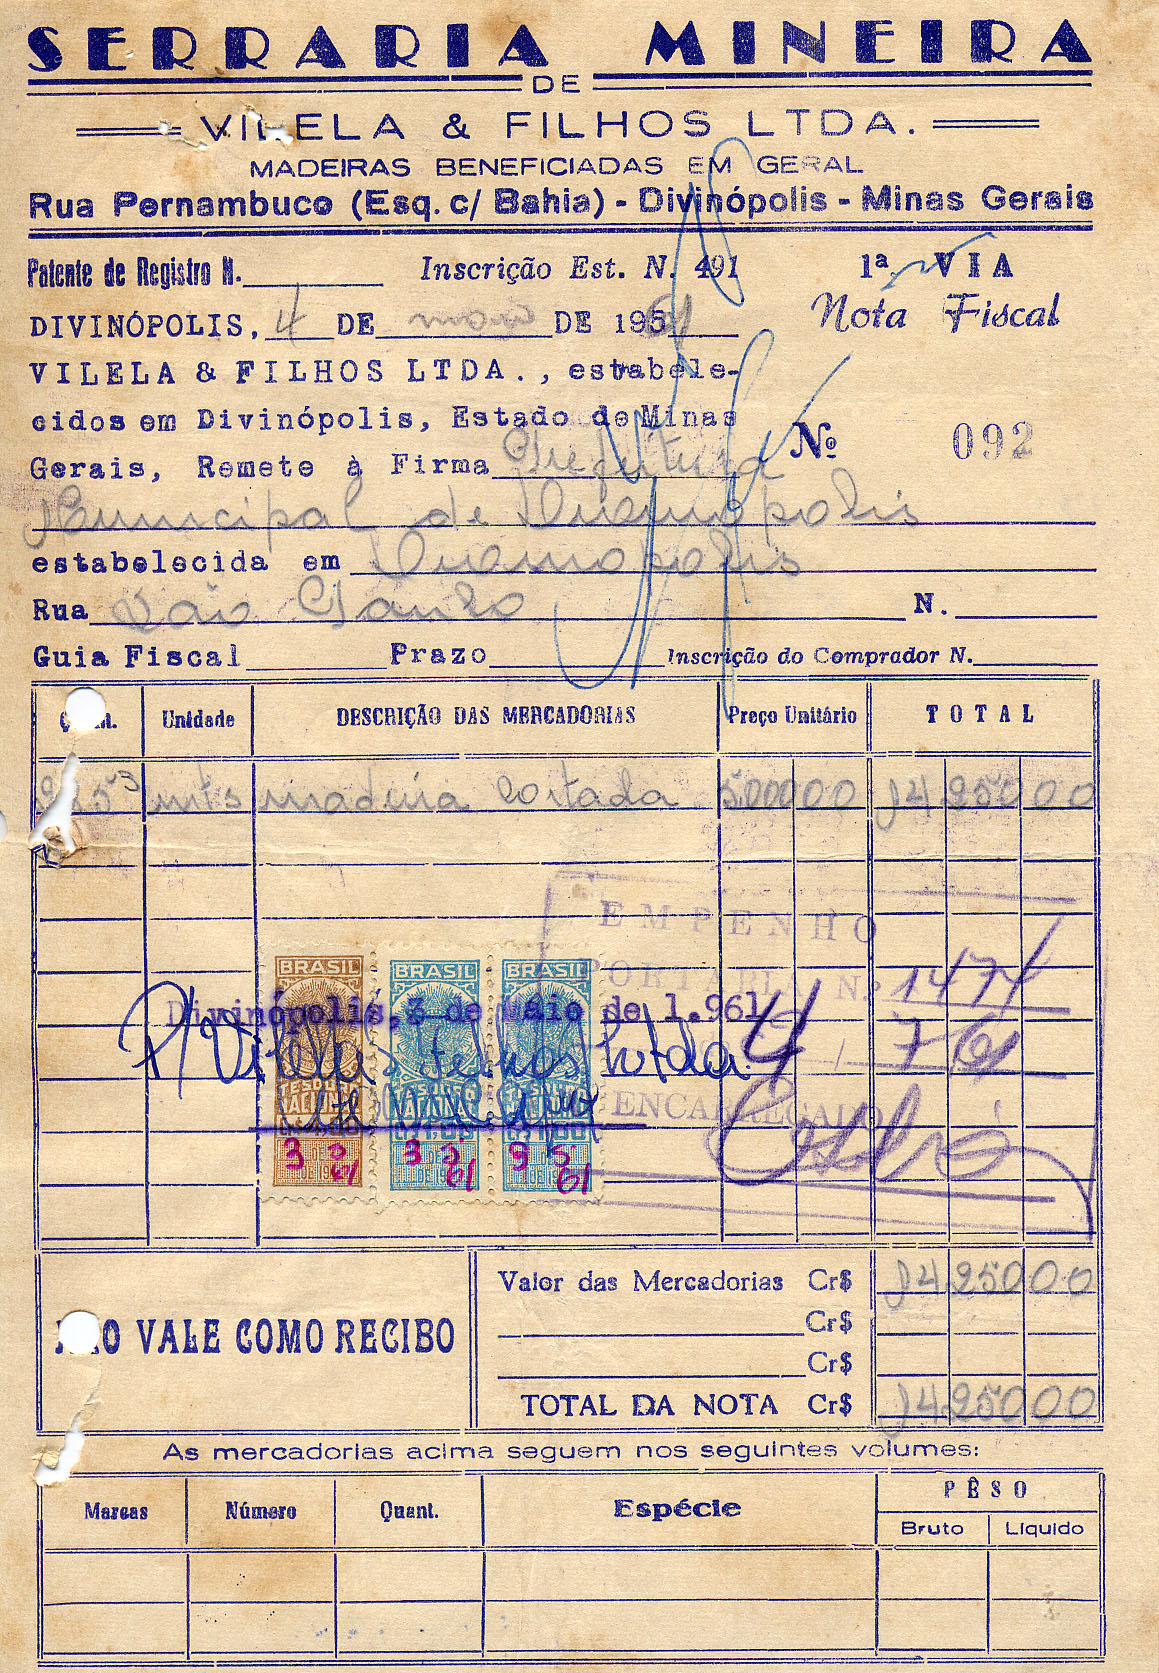 SERRARIA MINEIRA
DE
VILELA & FILHOS LTDA.
MADEIRAS BENEFICIADAS EM GERAL
Rua Pernambuco (Esq. c/ Bahia) - Divinópolis - Minas Gerais
Patente de Registro N. Inscrição Est. N. 491 1ª VIA
Nota Fiscal
DIVINÓPOLIS, 4 DE maio DE 1961
VILELA & FILHOS LTDA., estabele-
cidos em Divinópolis, Estado de Minas
Gerais, Remete à Firma Prefeitura
Nº 092
Municipal de Divinopolis
estabelecida em Divinopolis
Rua São Paulo N.
Guia Fiscal Prazo Inscrição do Comprador N.
Unidade DESCRIÇÃO DAS MERCADORIAS Preço Unitário TOTAL
mts madeira cortada 5.000 00 14 250 00
EMPENHO
PORTARIA N. 1474
BRASIL BRASIL BRASIL
Divinópolis, 3 de Maio de 1.961
P/ Vilela & Filhos Ltda
4 / 7 / 61
TESOURO
ENCARREGADO
3 5 61 3 5 61 3 5 61
Valor das Mercadorias Cr$ 14 250 00
Cr$
Cr$
NÃO VALE COMO RECIBO
TOTAL DA NOTA Cr$ 14 250 00
As mercadorias acima seguem nos seguintes volumes:
Marcas Número Quant. Espécie PÊSO
Bruto Líquido